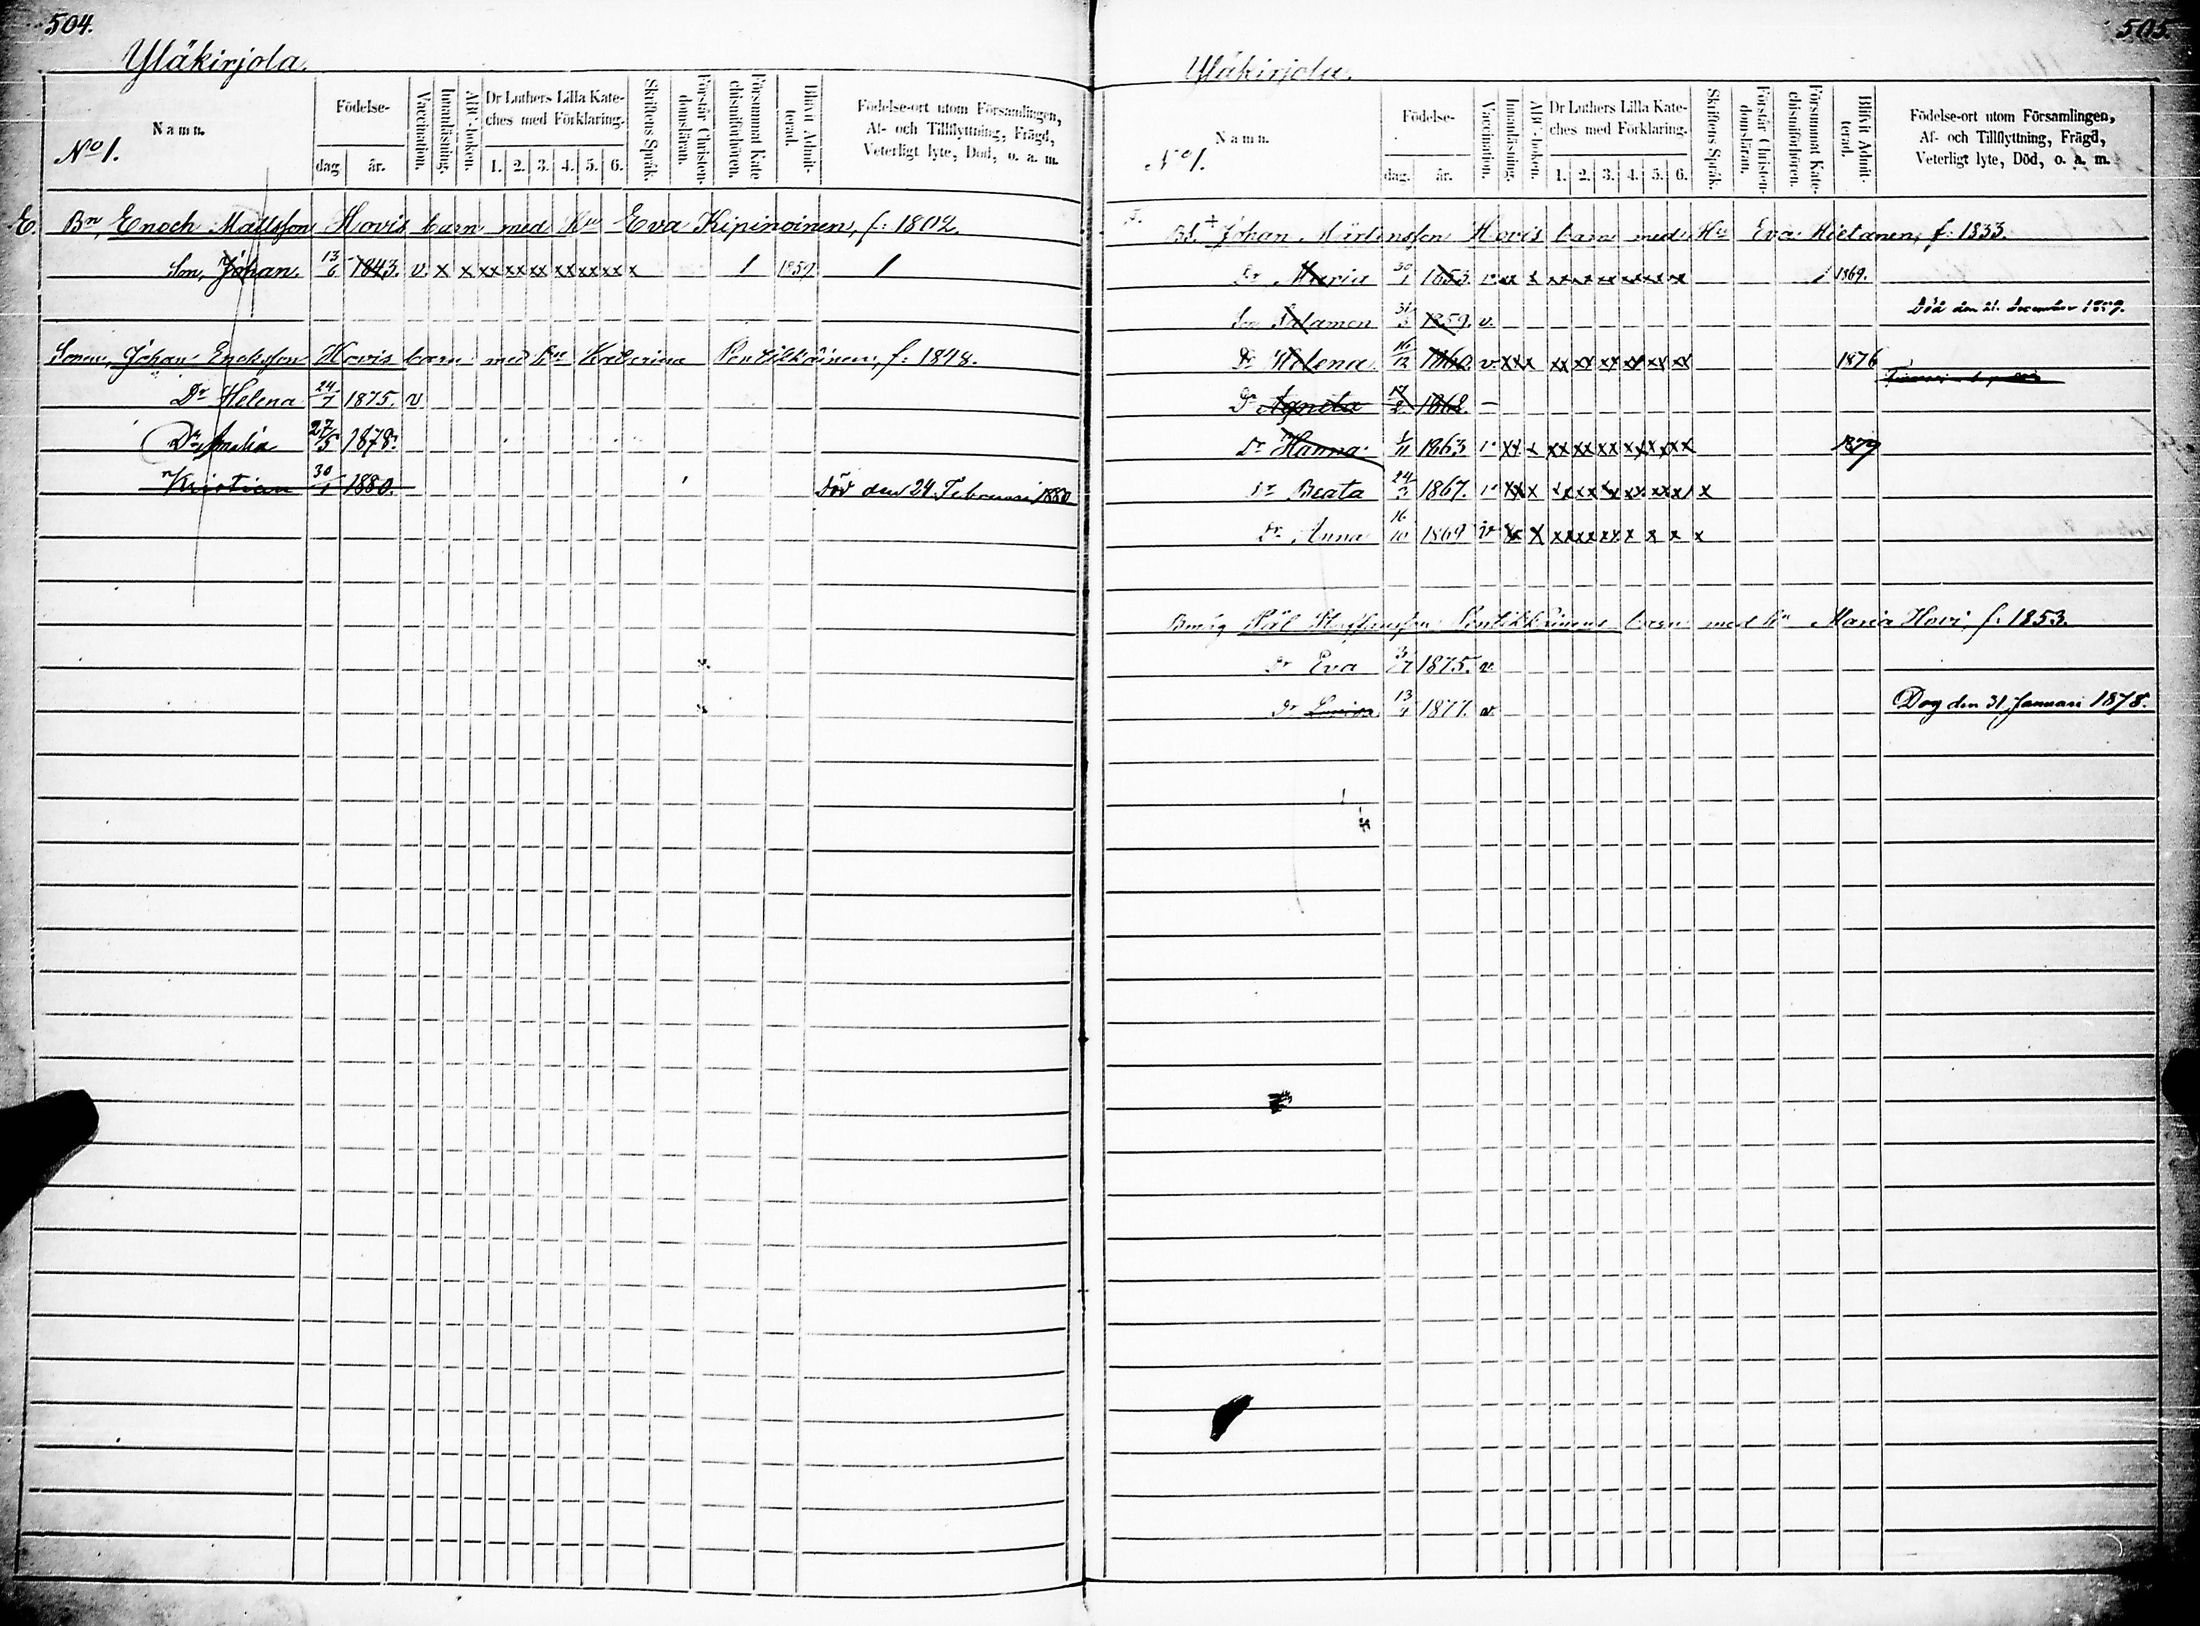 504.
Yläkirjola.
Namn.
No 1.
Födelse-
dag
år.
Vaccination.
Innanläsning.
ABC-boken.
Dr Luthers Lilla Kate-
ches med Förklaring.
1. 2. 3. 4. 5. 6.
Skriftens Språk.
Förstår Christen-
domsläran.
Försummat Kate-
chismiförhören.
Blifvit Admit-
terad.
Födelse-ort utom Församlingen,
Af- och Tillflyttning, Frägd,
Veterligt lyte, Död, o. a. m.
E. Bn, Enoch Mattsson Hovis barn med Hu Eva Kipinoinen, f. 1802.
Son, Johan. 13/6 1843. v. x x xx xx xx xx xx xx x 1 1859 1
Sonen, Johan Enoksson Hovis barn med Hu Katerina Pentikkäinen, f. 1848.
Dr Helena 24/7 1875. v
Dr Amalia 27/5 1878.
Kristian 30/1 1880. Död den 24 Februari 1880
505.
Yläkirjola.
Namn.
No 1.
Födelse-
dag.
år.
Vaccination.
Innanläsning.
ABC-boken.
Dr Luthers Lilla Kate-
ches med Förklaring.
1. 2. 3. 4. 5. 6.
Skriftens Språk.
Förstår Christen-
domsläran.
Försummat Kate-
chismiförhören.
Blifvit Admit-
terad.
Födelse-ort utom Församlingen,
Af- och Tillflyttning, Frägd,
Veterligt lyte, Död, o. a. m.
F. Bd. + Johan Mårtensson Hovis barn med Hu Eva Hietanen, f. 1833.
Dr Maria 30/1 1853. v x x xx xx xx xx xx x 1 1869.
Son Salamon 31/3 1859. v. Död den 21. december 1859.
Dr Helena 16/12 1860. v. xx x xx xx xx xx xx xx 1876
Dr Agneta 17/2 1862. —
Dr Hanna 1/11 1863 v xx x xx xx xx xx xx xx 1879
Dr Beata 24/3 1867. v xx x xx xx xx xx xx xx x
Dr Anna 16/10 1869 v x x xx xx xx x x x x
Påhl Staffansson Pentikkäinens barn med Hu Maria Hovi, f. 1853.
Dr Eva 3/7 1875. v.
Dr Lovisa 13/9 1877. v. Dog den 31 Januari 1878.